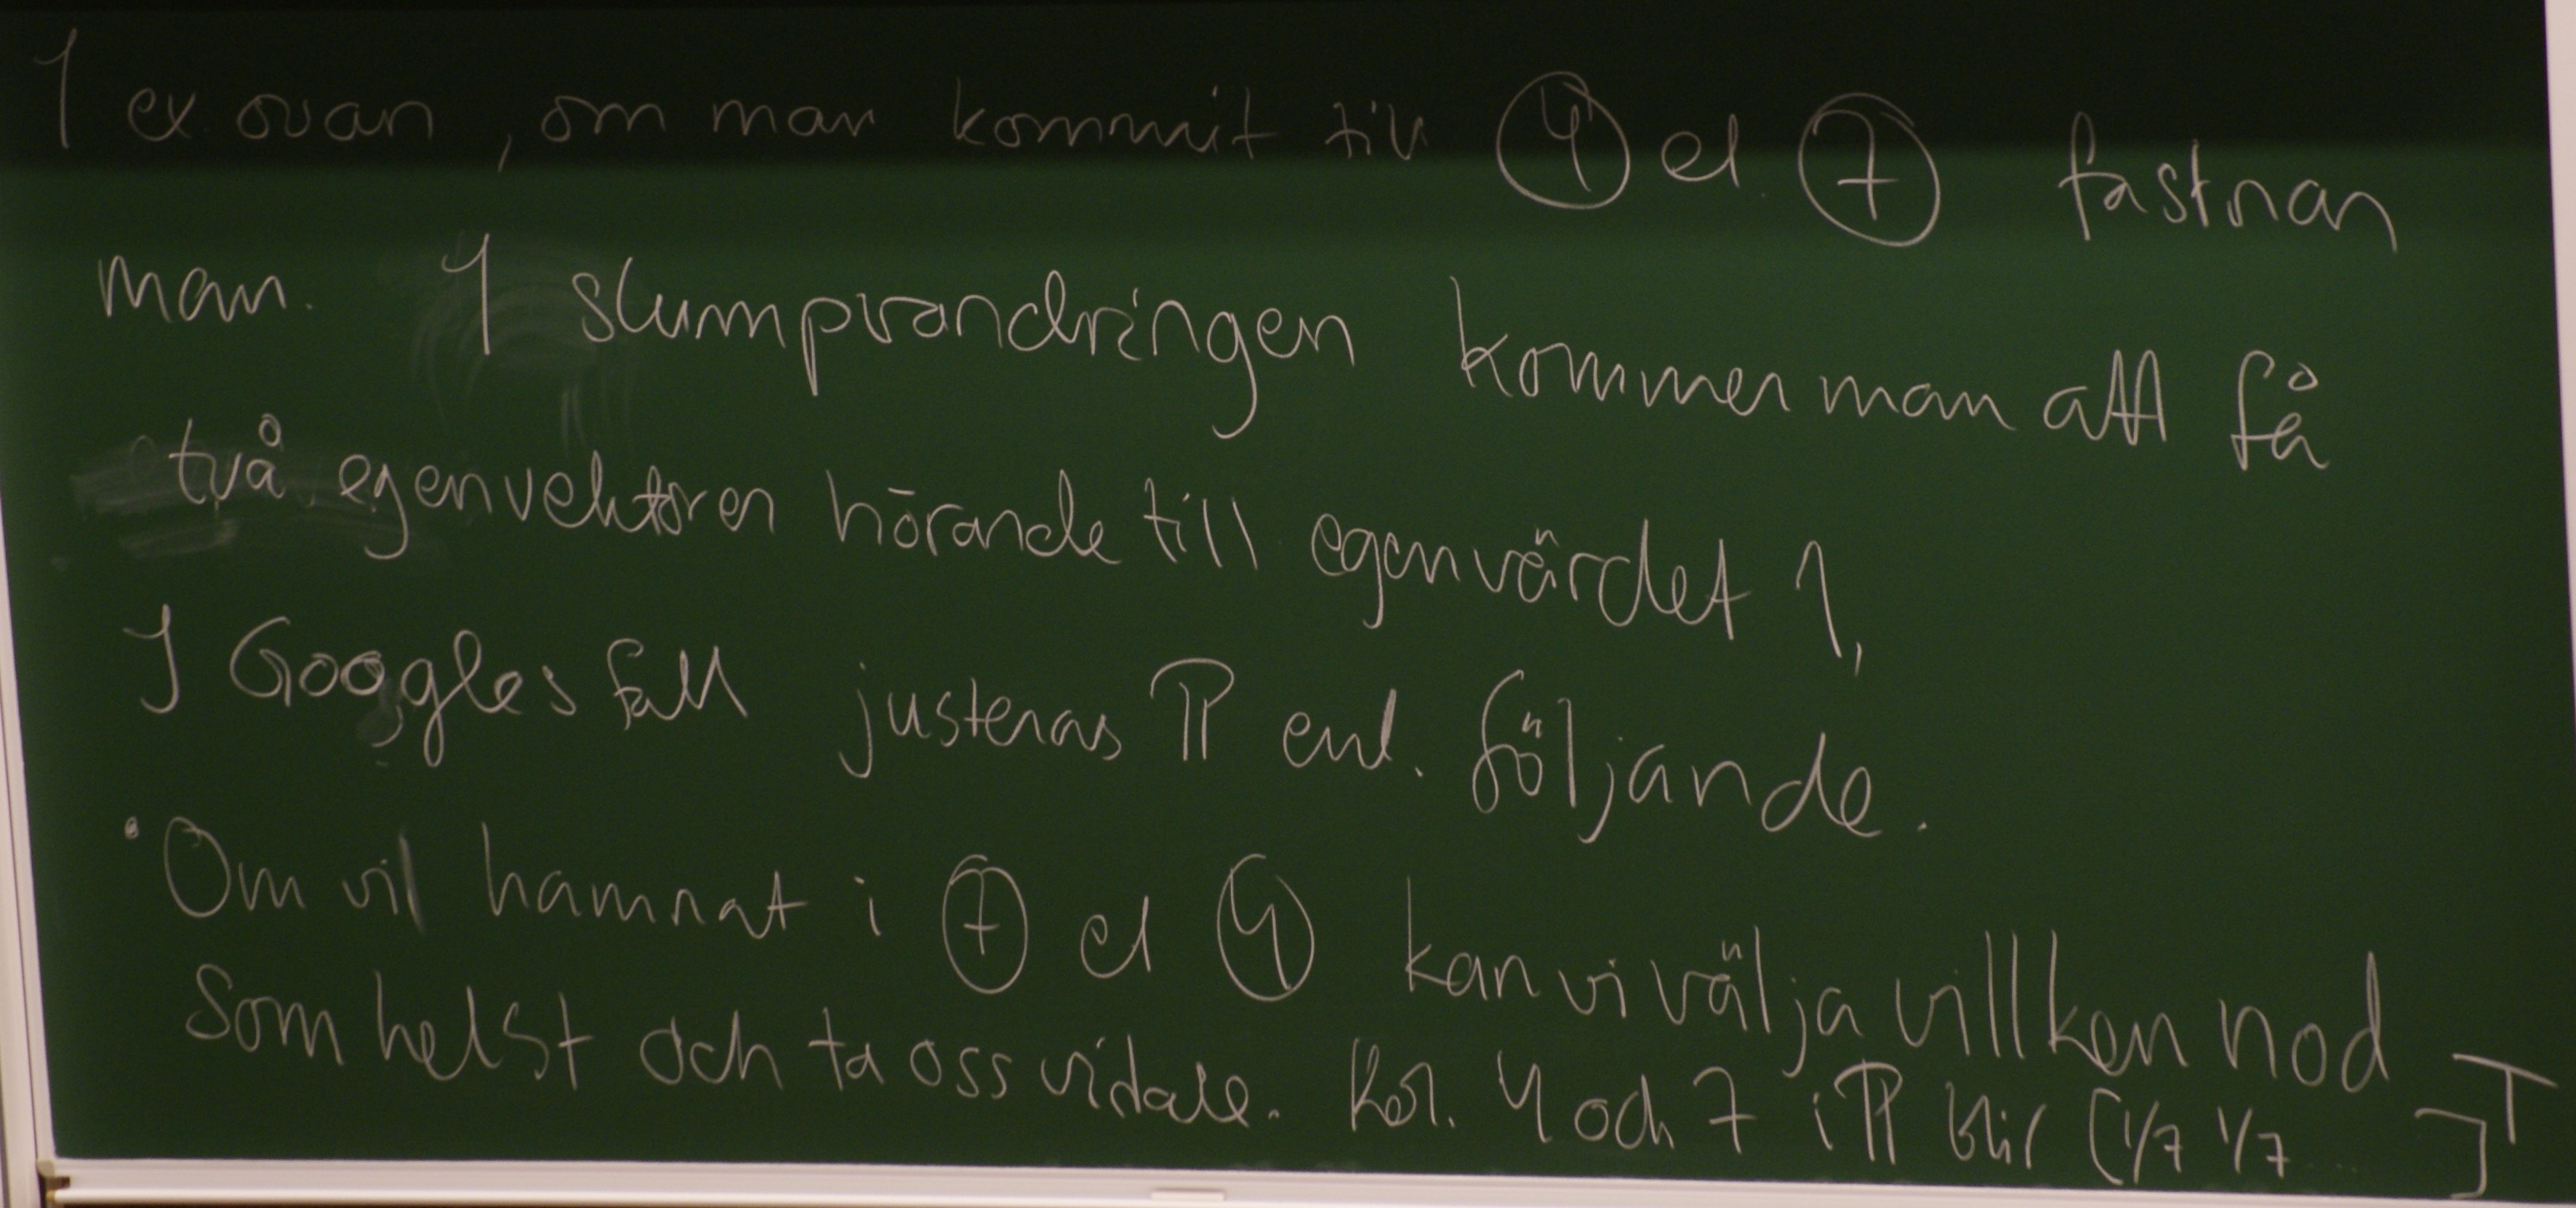 I ex. ovan, om man kommit till ④ el. ⑦ fastnar
man. I slumpvandringen kommer man att få
två egenvektorer hörande till egenvärdet 1,
I Googles fall justeras P enl. följande.
• Om vi hamnat i ⑦ el ④ kan vi välja villken nod
som helst och ta oss vidare. Kol. 4 och 7 i P blir [1/7 1/7 ... ]ᵀ